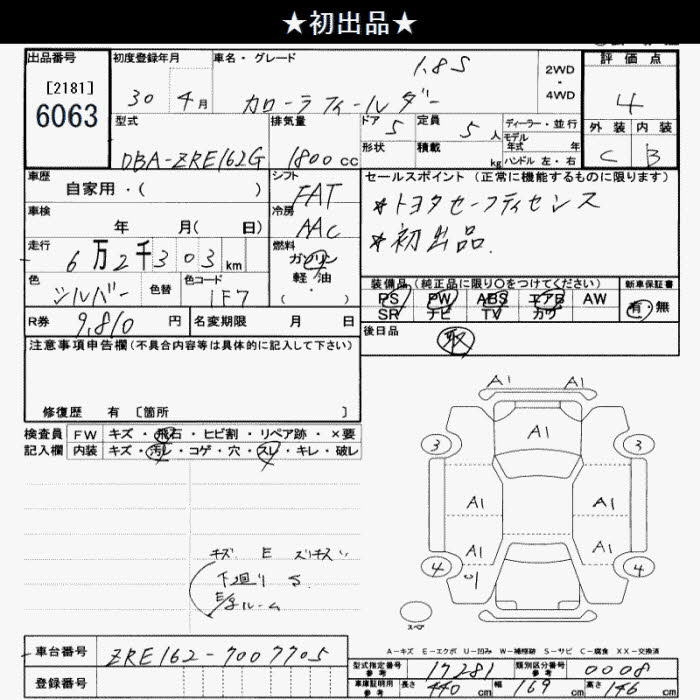 ★初出品★
出品番号
[2181]
6063
初度登録年月
30 4月
車名・グレード
1.8S
カローラフィールダー
2WD
・
4WD
評価点
4
外装 内装
C B
型式
DBA-ZRE162G
排気量
1800 cc
ドア 5
形状
定員 5人
積載 kg
ディーラー・並行
モデル
年式 年
ハンドル 左・右
車歴
自家用・( )
シフト
FAT
車検
年 月( 日)
冷房
AAC
走行
6万2千303km
燃料
ガソリン
軽・油
( )
色
シルバー
色替
色コード
1F7
R券
9,810円
名変期限 月 日
セールスポイント(正常に機能するものに限ります)
*トヨタセーフティセンス
*初出品.
装備品(純正品に限り○をつけてください)
新車保証書
PS PW ABS エアB AW
SR ナビ TV カワ
有・無
後日品
取
注意事項申告欄(不具合内容等は具体的に記入して下さい)
修復歴 有 [箇所 ]
検査員
記入欄
FW キズ・飛石・ヒビ割・リペア跡・×要
内装 キズ・汚レ・コゲ・穴・スレ・キレ・破レ
キズ E スリキズ
下廻り S
E/gルーム
A1 A1
A1
3 3
A1 A1
A1 A1
4 4
U1
スペア
A-キズ E-エクボ U-凹み W-補修跡 S-サビ C-腐食 XX-交換済
車台番号
ZRE162-7007705
登録番号
型式指定番号
参考
17281
類別区分番号
参考
0008
車庫証明用
参考
長さ 440 cm
幅 169 cm
高さ 146 cm